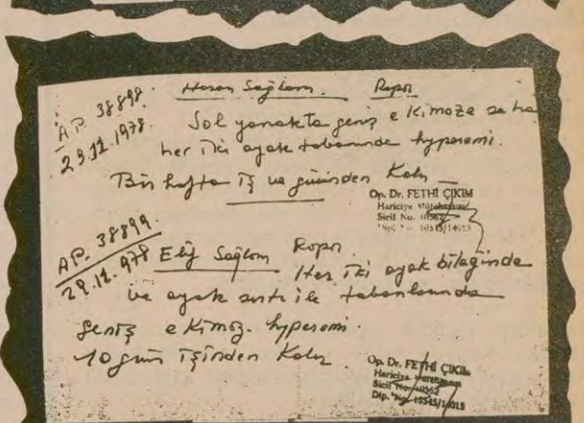 A.P. 38898. Hasan Sağlam. Rapor
29.12.1978. Sol yanakta geniş ekimoze saha
her iki ayak tabanında hyperemi.
Bir hafta iş ve gücünden Kalır
Op. Dr. FETHİ ÇIKIM
Hariciye Mütehassısı
Sicil No. 10562
Dip. No. 10545/14013
A.P. 38899. Elif Sağlam Rapor
29.12.1978 Her iki ayak bileğinde
ve ayak sırtı ile tabanlarında
geniş ekimoz. hyperemi.
10 gün işinden Kalır.
Op. Dr. FETHİ ÇIKIM
Hariciye Mütehassısı
Sicil No. 10562
Dip. No. 10545/14013